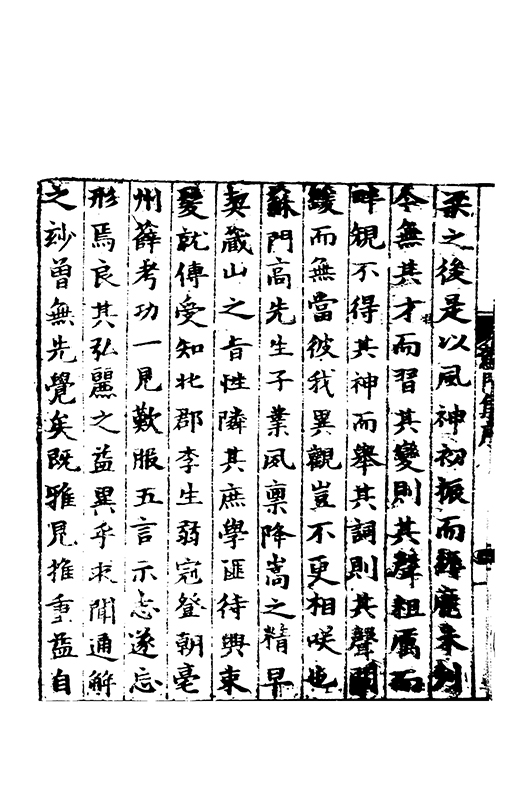 蘇門集序
梁之後是以風神初振而縟靡未刋
今無其才而習其變則其聲粗厲而
畔規不得其神而舉其詞則其聲闡
緩而無當彼我異觀豈不更相咲也
蘇門高先生子業夙稟降嵩之精早
契藏山之旨性隣其庶學匪待興束
髮就傳受知北郡李生弱冠登朝亳
州薛考功一見歎服五言示志遂忘
形焉良其弘麗之益異乎求聞通解
之玅曽無先覺矣既雅見推重益自